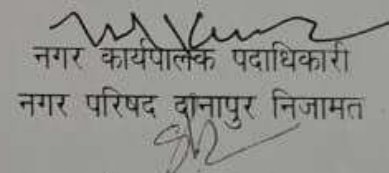 नगर कार्यपालक पदाधिकारी
नगर परिषद दानापुर निजामत